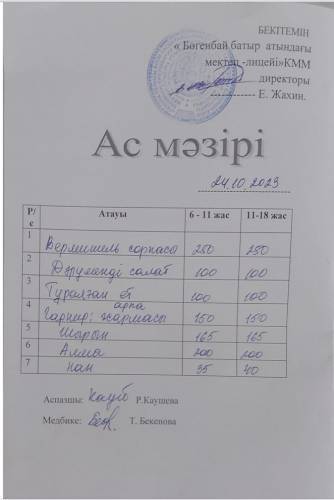 БЕКІТЕМІН
« Бөгенбай батыр атындағы
мектеп -лицейі»КММ
директоры
Е. Жахин.
Ас мәзірі
24.10.2023
Р/с Атауы 6 - 11 жас 11-18 жас
1 Вермишель сорпасы 250 250
2 Дәруменді салат 100 100
3 Туралған ет 100 100
4 Гарнир: арпа жармасы 150 150
5 Шырын 165 165
6 Алма 200 200
7 нан 35 40
Аспазшы: Р.Каушева
Медбике: Т. Бекепова